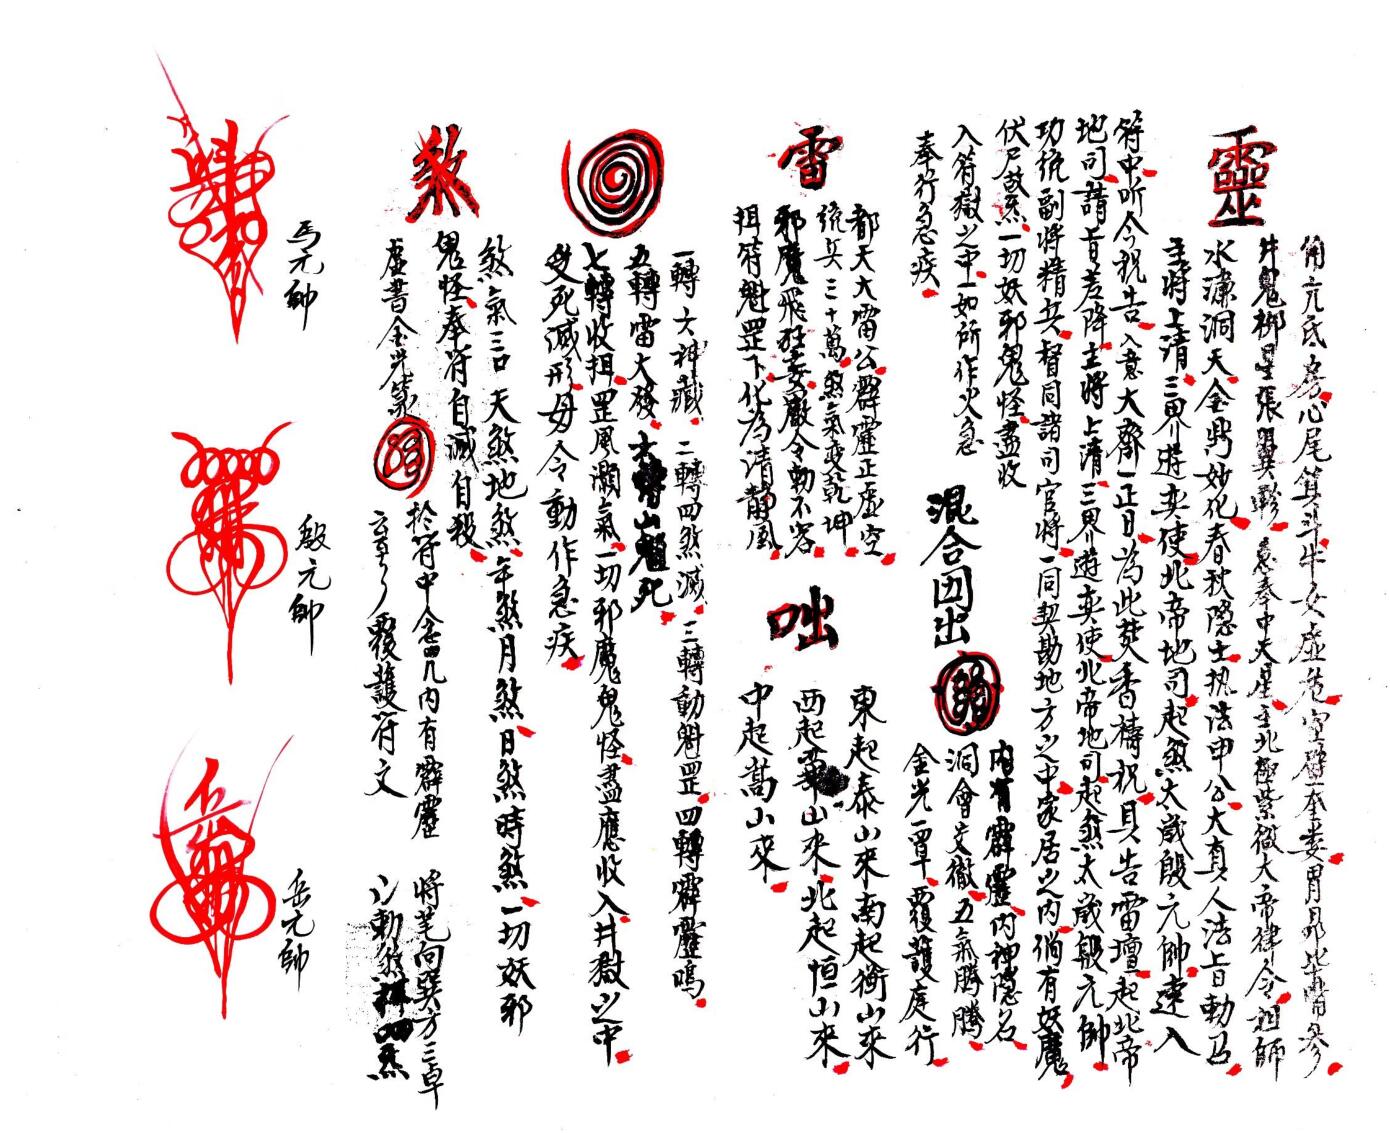 靈
角亢氐房心尾箕斗牛女虛危室壁奎婁胃昴畢觜參
井鬼柳星張翼軫急奉中天星主北極紫微大帝律令祖師
水濂洞天金鼎妙化春秋隐士执法甲公大真人法旨勅召
主將上清三界遊奕使北帝地司起煞太歲殷元帥速入
符中听令祝告入意大齋一正日為此焚香禱祝具告雷壇起北帝
地司請旨差降主將上清三界遊奕使北帝地司起煞太歲殷元帥
功統副將精兵督同諸司官將一同契勘地方之中家居之内倘有妖魔
伏尸故煞一切妖邪鬼怪盡收
入符獄之中一如所作火急
奉行急疾
混合団出
内有霹靂内神隐名
洞會交徹五氣騰騰
金光一罩覆護庭行
雷
都天大雷公霹靂正虛空
統兵三十萬煞氣变乾坤
邪魔飛狂妄嚴令勅不容
揖符魁罡下化為清静風
咄
東起泰山來南起衡山來
西起華山來北起恒山來
中起嵩山來
一轉大神藏二轉四煞滅三轉動魁罡四轉霹靂鳴
五轉雷大發六轉山魈死
七轉收揖罡風灝氣一切邪魔鬼怪盡應收入井獄之中
受死滅形毋令動作急疾
煞
煞氣三口天煞地煞年煞月煞日煞時煞一切妖邪
鬼怪奉符自滅自殺
虛書金光篆
於符中念四凡内有霹靂將筆向巽方三卓
覆護符文
馬元帥
殷元帥
岳元帥